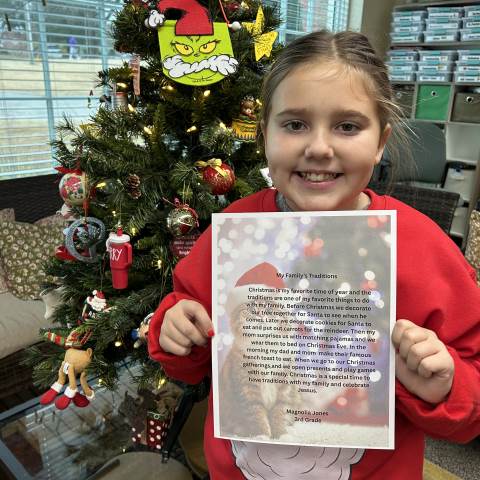 My Family's Traditions
Christmas is my favorite time of year and the
traditions are one of my favorite things to do
with my family. Before Christmas we decorate
our tree for Santa to see when he
comes. Later we decorate cookies for Santa to
eat and put out carrots for the reindeer. Then my
mom surprises us with matching pajamas and we
wear them to bed on Christmas Eve. In the
morning my dad and mom make their famous
french toast to eat. When we go to our Christmas
gatherings,and we open presents and play games
with our family. Christmas is a special time to
have traditions with my family and celebrate
Jessus.
Magnolia Jones
3rd Grade